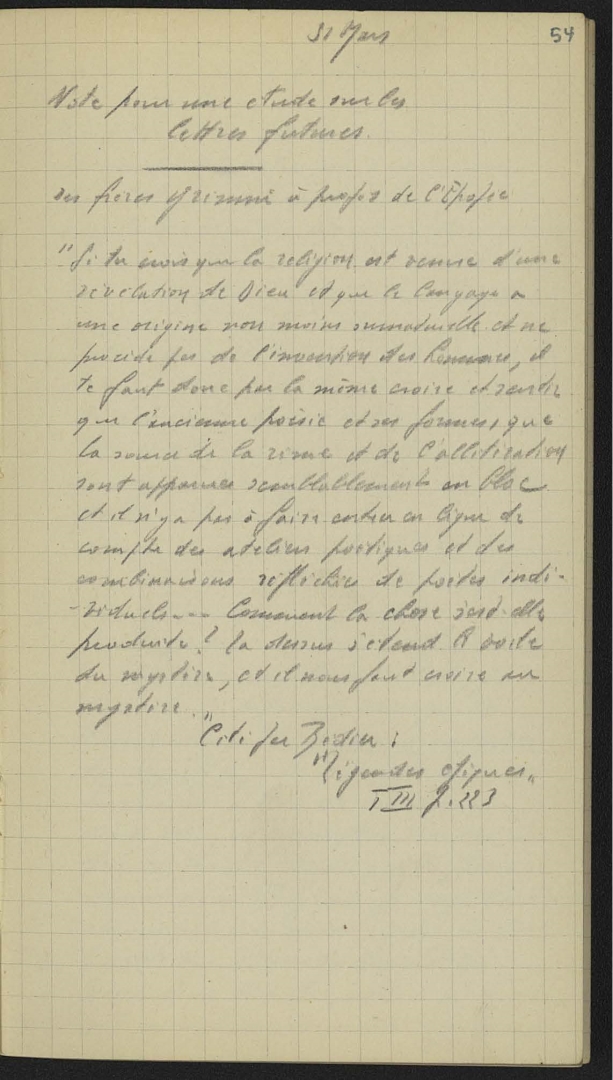 31 Mars
54
Note pour une etude sur les
lettres futures.
des frères Grimm à propos de l'Epopée
"Si tu crois que la religion est venue d'une
révélation de Dieu et que le langage a
une origine non moins surnaturelle et ne
procède pas de l'invention des hommes, il
te faut donc par la même croire et sentir
que l'ancienne poésie et ses formes, que
la source de la rime et de l'allitération
sont apparues semblablement en bloc
et il n'y a pas à faire entrer en ligne de
compte des ateliers poétiques et des
combinaisons réfléchies de poetes indi-
-viduels--- Comment la chose s'est-elle
produite? la dessus s'etend le voile
du mystère, et il nous faut croire au
mystère."
Cité par Bedier :
"Légendes épiques"
T III p. 223